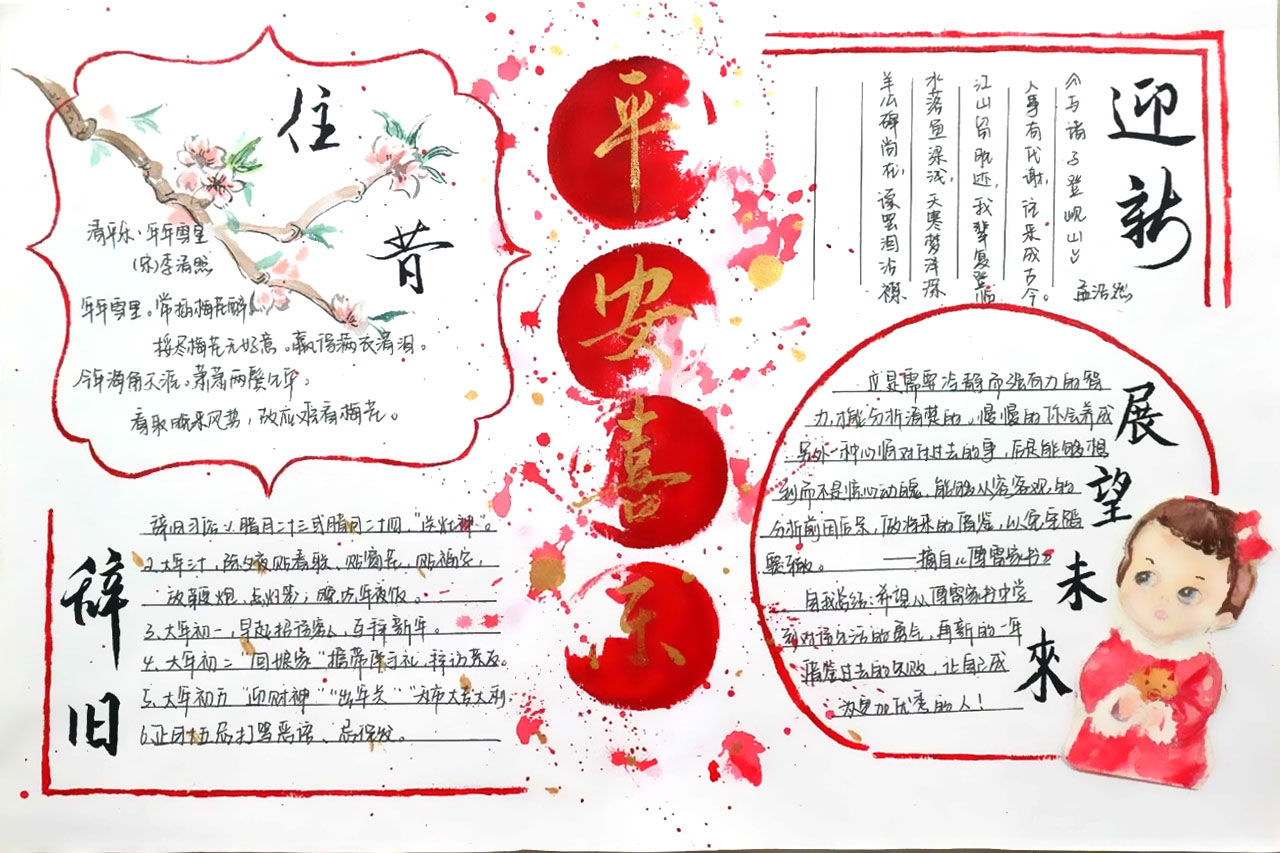 住昔
清平乐·年年雪里
(宋)李清照
年年雪里。常插梅花醉
挼尽梅花无好意。赢得满衣清泪。
今年海角天涯。萧萧两鬓生华。
看取晚来风势，故应难看梅花。
平安喜乐
迎新
《与诸子登岘山》 孟浩然
人事有代谢，往来成古今。
江山留胜迹，我辈复登临
水落鱼梁浅，天寒梦泽深
羊公碑尚在，读罢泪沾襟
辞旧
辞旧习俗 1、腊月二十三或腊月二十四，“送灶神”。
2、大年三十，除夕夜贴春联、贴窗花，贴福字，
放鞭炮，点灯笼；晚吃年夜饭。
3、大年初一，早起招待客人，互拜新年。
4、大年初二“回娘家”携带 礼，拜访亲友。
5、大年初五“迎财神”“ ” 大吉大利
6、正月十五忌打骂恶语、忌 。
展望未來
应是需要冷静而强有力的智
力，才能分析清楚的，慢慢的你会养成
另外一种心情对付过去的事，后是能够想
到而不是惊心动魄，能够从客客观的
分析前因后果，做将来的借鉴，以免重蹈
覆辙。 ——摘自《傅雷家书》
自我总结：希望从傅雷家书中学
到对待生活的勇气，再新的一年
借鉴过去的失败，让自己成
为更加优秀的人！